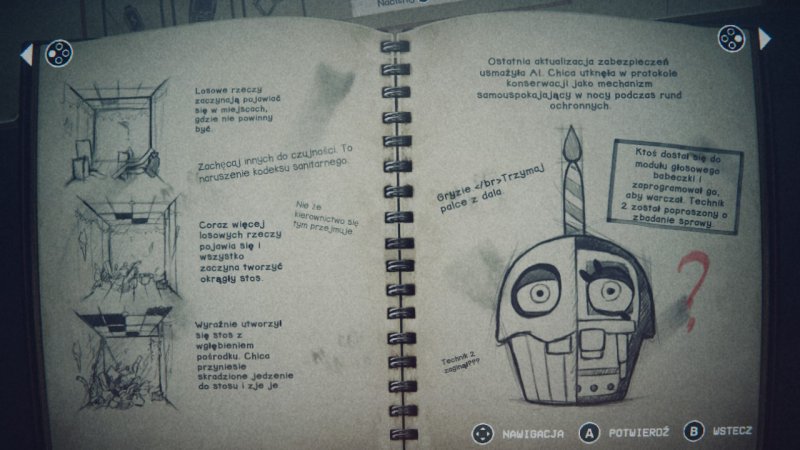 Losowe rzeczy
zaczynają pojawiać
się w miejscach,
gdzie nie powinny
być.
Zachęcaj innych do czujności. To
naruszenie kodeksu sanitarnego.
Nie że
kierownictwo się
tym przejmuje.
Coraz więcej
losowych rzeczy
pojawia się i
wszystko
zaczyna tworzyć
okrągły stos.
Wyraźnie utworzył
się stos z
wgłębieniem
pośrodku. Chica
przyniesie
skradzione jedzenie
do stosu i zje je
Ostatnia aktualizacja zabezpieczeń
usmażyła AI. Chica utknęła w protokole
konserwacji jako mechanizm
samouspokajający w nocy podczas rund
ochronnych.
Gryzie </br>Trzymaj
palce z dala.
Ktoś dostał się do
modułu głosowego
babeczki i
zaprogramował go,
aby warczał. Technik
2 został poproszony o
zbadanie sprawy.
?
Technik 2
zaginął???
NAWIGACJA A POTWIERDŹ B WSTECZ